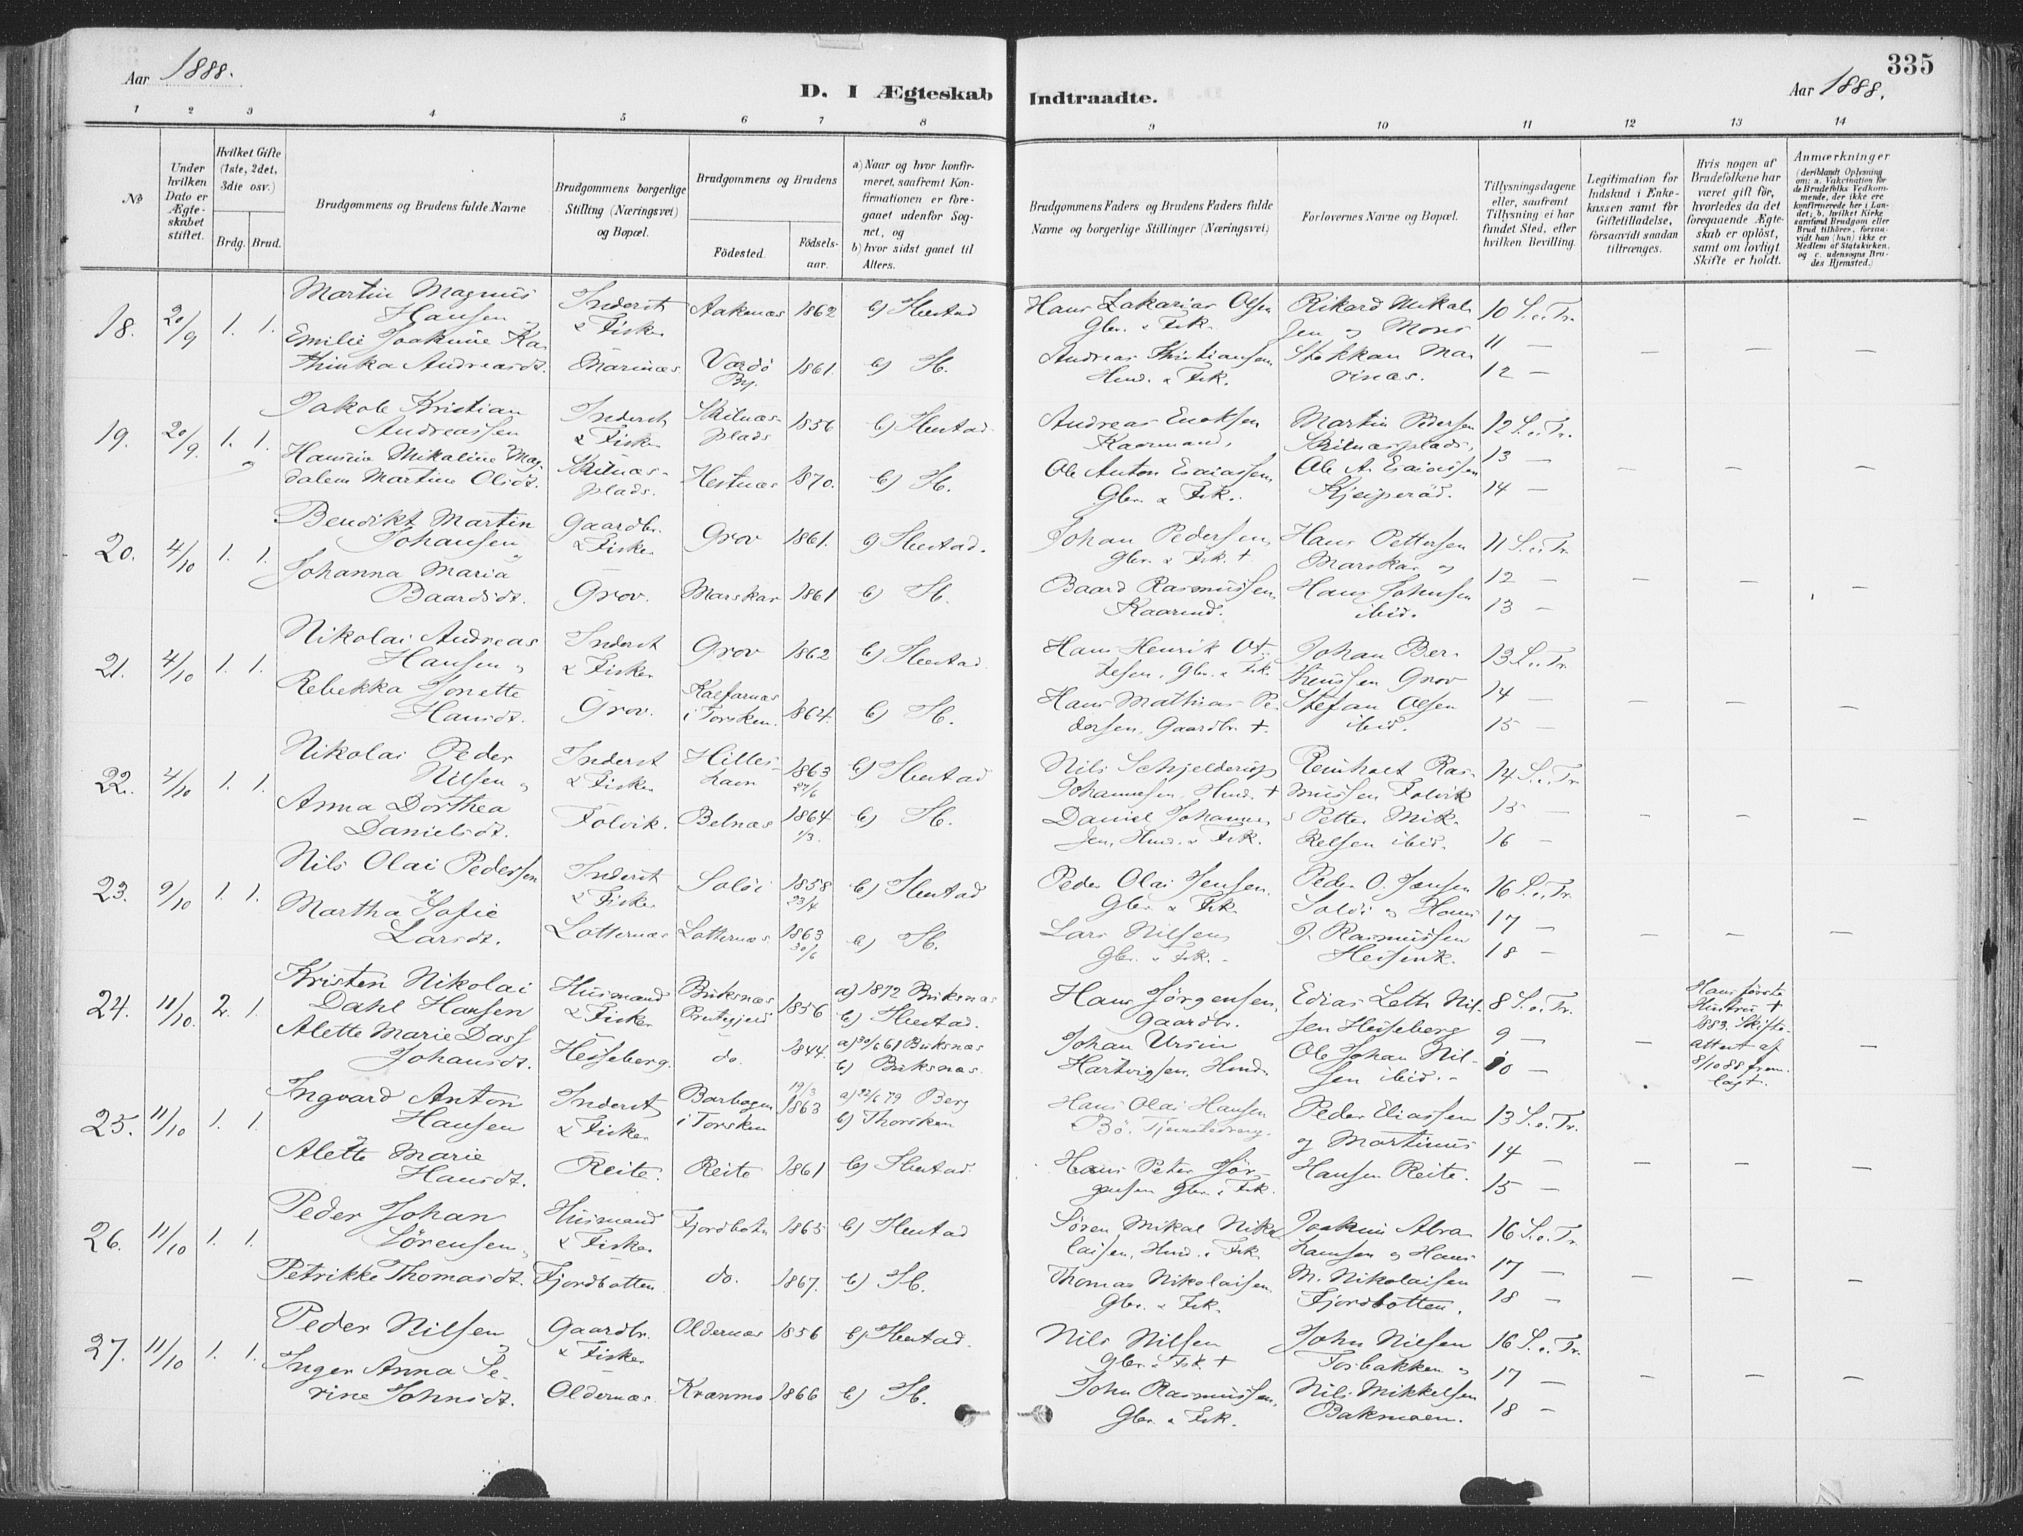 Aar 1888.
D. I Ægteskab Indtraadte.
Aar 1888.
335
1 2 3 4 5 6 7 8 9 10 11 12 13 14
No
Under hvilken Dato er Ægteskabet stiftet.
Hvilket Gifte (1ste, 2det, 3die osv.)
Brdg. Brud.
Brudgommens og Brudens fulde Navne
Brudgommens borgerlige Stilling (Næringsvei) og Bopæl.
Brudgommens og Brudens
Födested.
Födsels-aar.
a) Naar og hvor konfirmeret, saafremt Konfirmationen er foregaaet udenfor Sognet, og
b) hvor sidst gaaet til Alters.
Brudgommens Faders og Brudens Faders fulde Navne og borgerlige Stillinger (Næringsvei)
Forlovernes Navne og Bopæl.
Tillysningsdagene eller, saafremt Tillysning ei har fundet Sted, efter hvilken Bevilling.
Legitimation for Indskud i Enkekassen samt for Giftetilladelse, forsaavidt saadan tiltrænges.
Hvis nogen af Brudefolkene har været gift för, hvorledes da det foregaaende Ægteskab er oplöst, samt om lovligt Skifte er holdt.
Anmærkninger (deriblandt Oplysning om: a. Vakcination for de Brudefolks Vedkommende, der ikke ere konfirmerede her i Landet; b. hvilket Kirkesamfund Brudgom eller Brud tilhörer, forsaavidt han (hun) ikke er Medlem af Statskirken, og c. udensogns Brudes Hjemsted.)
18. 20/9 1. 1. Martin Magnus Hansen & Inderst & Fisker Aakenæs 1862 b) Ibestad Hans Zakarias Olsen Gbr. & Fisk. Rikard Mikalsen og Mons 10 S. e. Tr.
Emilie Joakime Kathinka Andreasdt. Marinæs Vardö By. 1861. b) Ib. Andreas Kristiansen Hmd. & Fisk. Stokkan Marinæs. 11 — 12 — — — —
19. 20/9. 1. 1. Jakob Kristian Andreassen og Inderst & Fisker Skilnæsplads 1856 b) Ibestad Andreas Enoksen Kaarmand, Martin Pedersen Skilnæsplads, 12 S. e. Tr.
Hansine Mikaline Magdalena Martine Olsdt. Skilnæsplads. Hestnæs 1870. b) Ib. Ole Anton Esaiassen, Gbr. & Fisk. Ole A. Esaiassen Kjeiperöd. 13 — 14 — — — —
20. 4/10 1. 1. Bendikt Martin Johansen Gaardbr. & Fisker Grov 1861. b) Ibestad. Johan Pedersen, Gbr. & Fisk. + Hans Pettersen Marskar og 11 S. e. Tr.
Johanna Maria Baardsdt. Grov. Marskar 1861 b) Ib. Baard Rasmussen, Kaarmd. Hans Johnsen ibid. 12 — 13 — — — —
21. 4/10 1. 1. Nikolai Andreas Hansen Inderst & Fisker Grov 1862 b) Ibestad Hans Henrik Ottesen, Gbr. & Fisk. Johan Bernthsen Grov 13 S. e. Tr.
Rebekka Jonette Hansdt. Grov. Kalfarnæs i Torsken. 1864. b) Ib. Hans Mathias Pedersen, Gaardbr. +. Stefan Olsen ibid. 14 — 15 — — — —
22. 4/10 1. 1. Nikolai Peder Nilsen Inderst & Fisker Hilleshavn 1863 27/6 b) Ibestad Nils Schjelderup Johannesen, Hmd. + Reinholt Rasmussen Folvik 14 S. e. Tr.
Anna Dorthea Danielsdt. Folvik. Belnæs 1864 1/3. b) Ib. Daniel Johannesen, Hmd. & Fisk. Petter Mikkelsen ibid. 15 — 16 — — — —
23. 9/10 1. 1. Nils Olai Pedersen Inderst & Fisker Salöi 1858 23/4 b) Ibestad Peder Olai Jensen. Gbr. & Fisk. Peder O. Jensen Salöi og Hans 16 S. e. Tr.
Martha Sofie Larsdt. Lotternæs Lotternæs. 1863 30/6 b) Ib. Lars Nilsen, Gbr. & Fisk. J. Rasmussen 17 — 18 — — — —
24. 11/10. 2. 1. Kristen Nikolai Dahl Hansen Husmand & Fisker Buksnæs Prestegjeld 1856 a) 1872 Buksnæs b) Ibestad. Hans Jörgensen, Gaardbr. Edias Leth Nilsen Hesseberg 8 S. e. Tr.
Alette Marie Dass Johansdt. Hesseberg. do. 1844. a) 30/6 61 Buksnæs b) Buksnæs. Johan Ursin Hartvigsen, Hmd. Ole Johan Nilsen ibid. 9 — 10 — — Hans förste Hustru + 1883. Skifteattest af 8/10 88 fremlagt. —
25. 11/10 1. 1. Ingvard Anton Hansen Inderst & Fisker Barbogen i Torsken 19/3 1863 a) 22/6 79 Berg b) Thorsken Hans Olai Hansen Bö. Tjenstedreng. Peder Eliassen og Martinus 13 S. e. Tr.
Alette Marie Hansdt. Reite. Reite 1861 b) Ibestad Hans Peter Jörgensen Gbr. & Fisk. Hansen Reite. 14 — 15 — — — —
26. 11/10 1. 1. Peder Johan Sörensen, Husmand & Fisker Fjordbotn 1865 b) Ibestad Sören Mikal Nikolaisen, Hmd. & Fisk. Joakim Abrahamsen og Hans 16 S. e. Tr.
Petrikke Thomasdt. Fjordbotten. do. 1867. b) Ib. Thomas Nikolaisen, Gbr. & Fisk. M. Nikolaisen Fjordbotten. 17 — 18 — — — —
27. 11/10 1. 1. Peder Nilsen Gaardbr. & Fisker Oldernæs 1856 b) Ibestad. Nils Nilsen Gbr. & Fisk. + John Nilsen Fosbakken og 16 S. e. Tr.
Inger Anna Serine Johnsdt. Oldernæs. Kranmo 1866 b) Ib. John Rasmussen, Gbr. & Fisk. Nils Mikkelsen Bakmoen. 17 — 18 — — — —